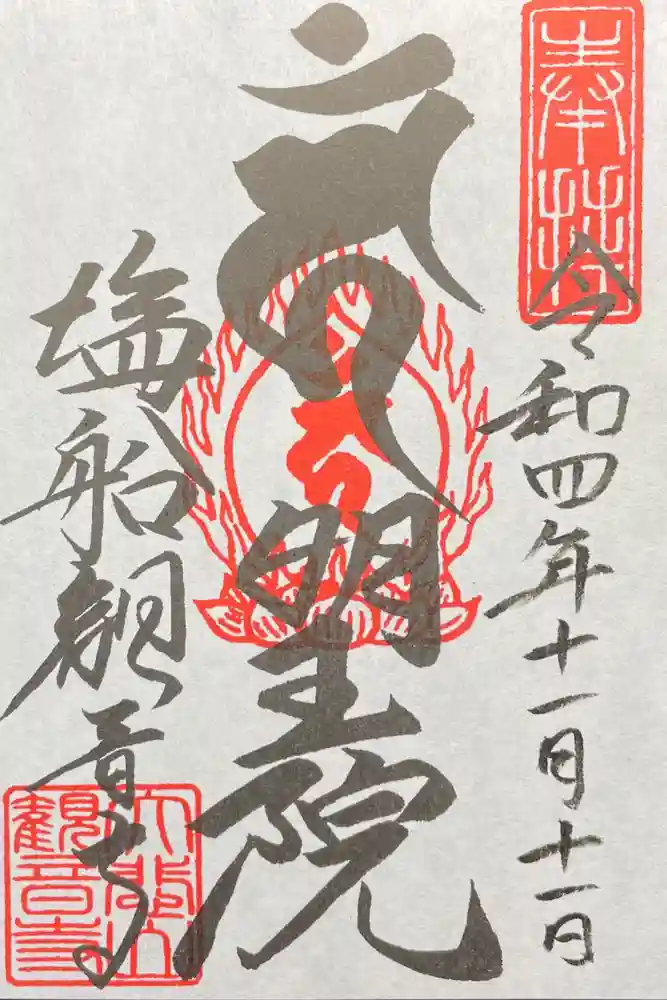 奉拝
令和四年十一月十一日
明王院
塩船観音寺
大悲山
観音寺